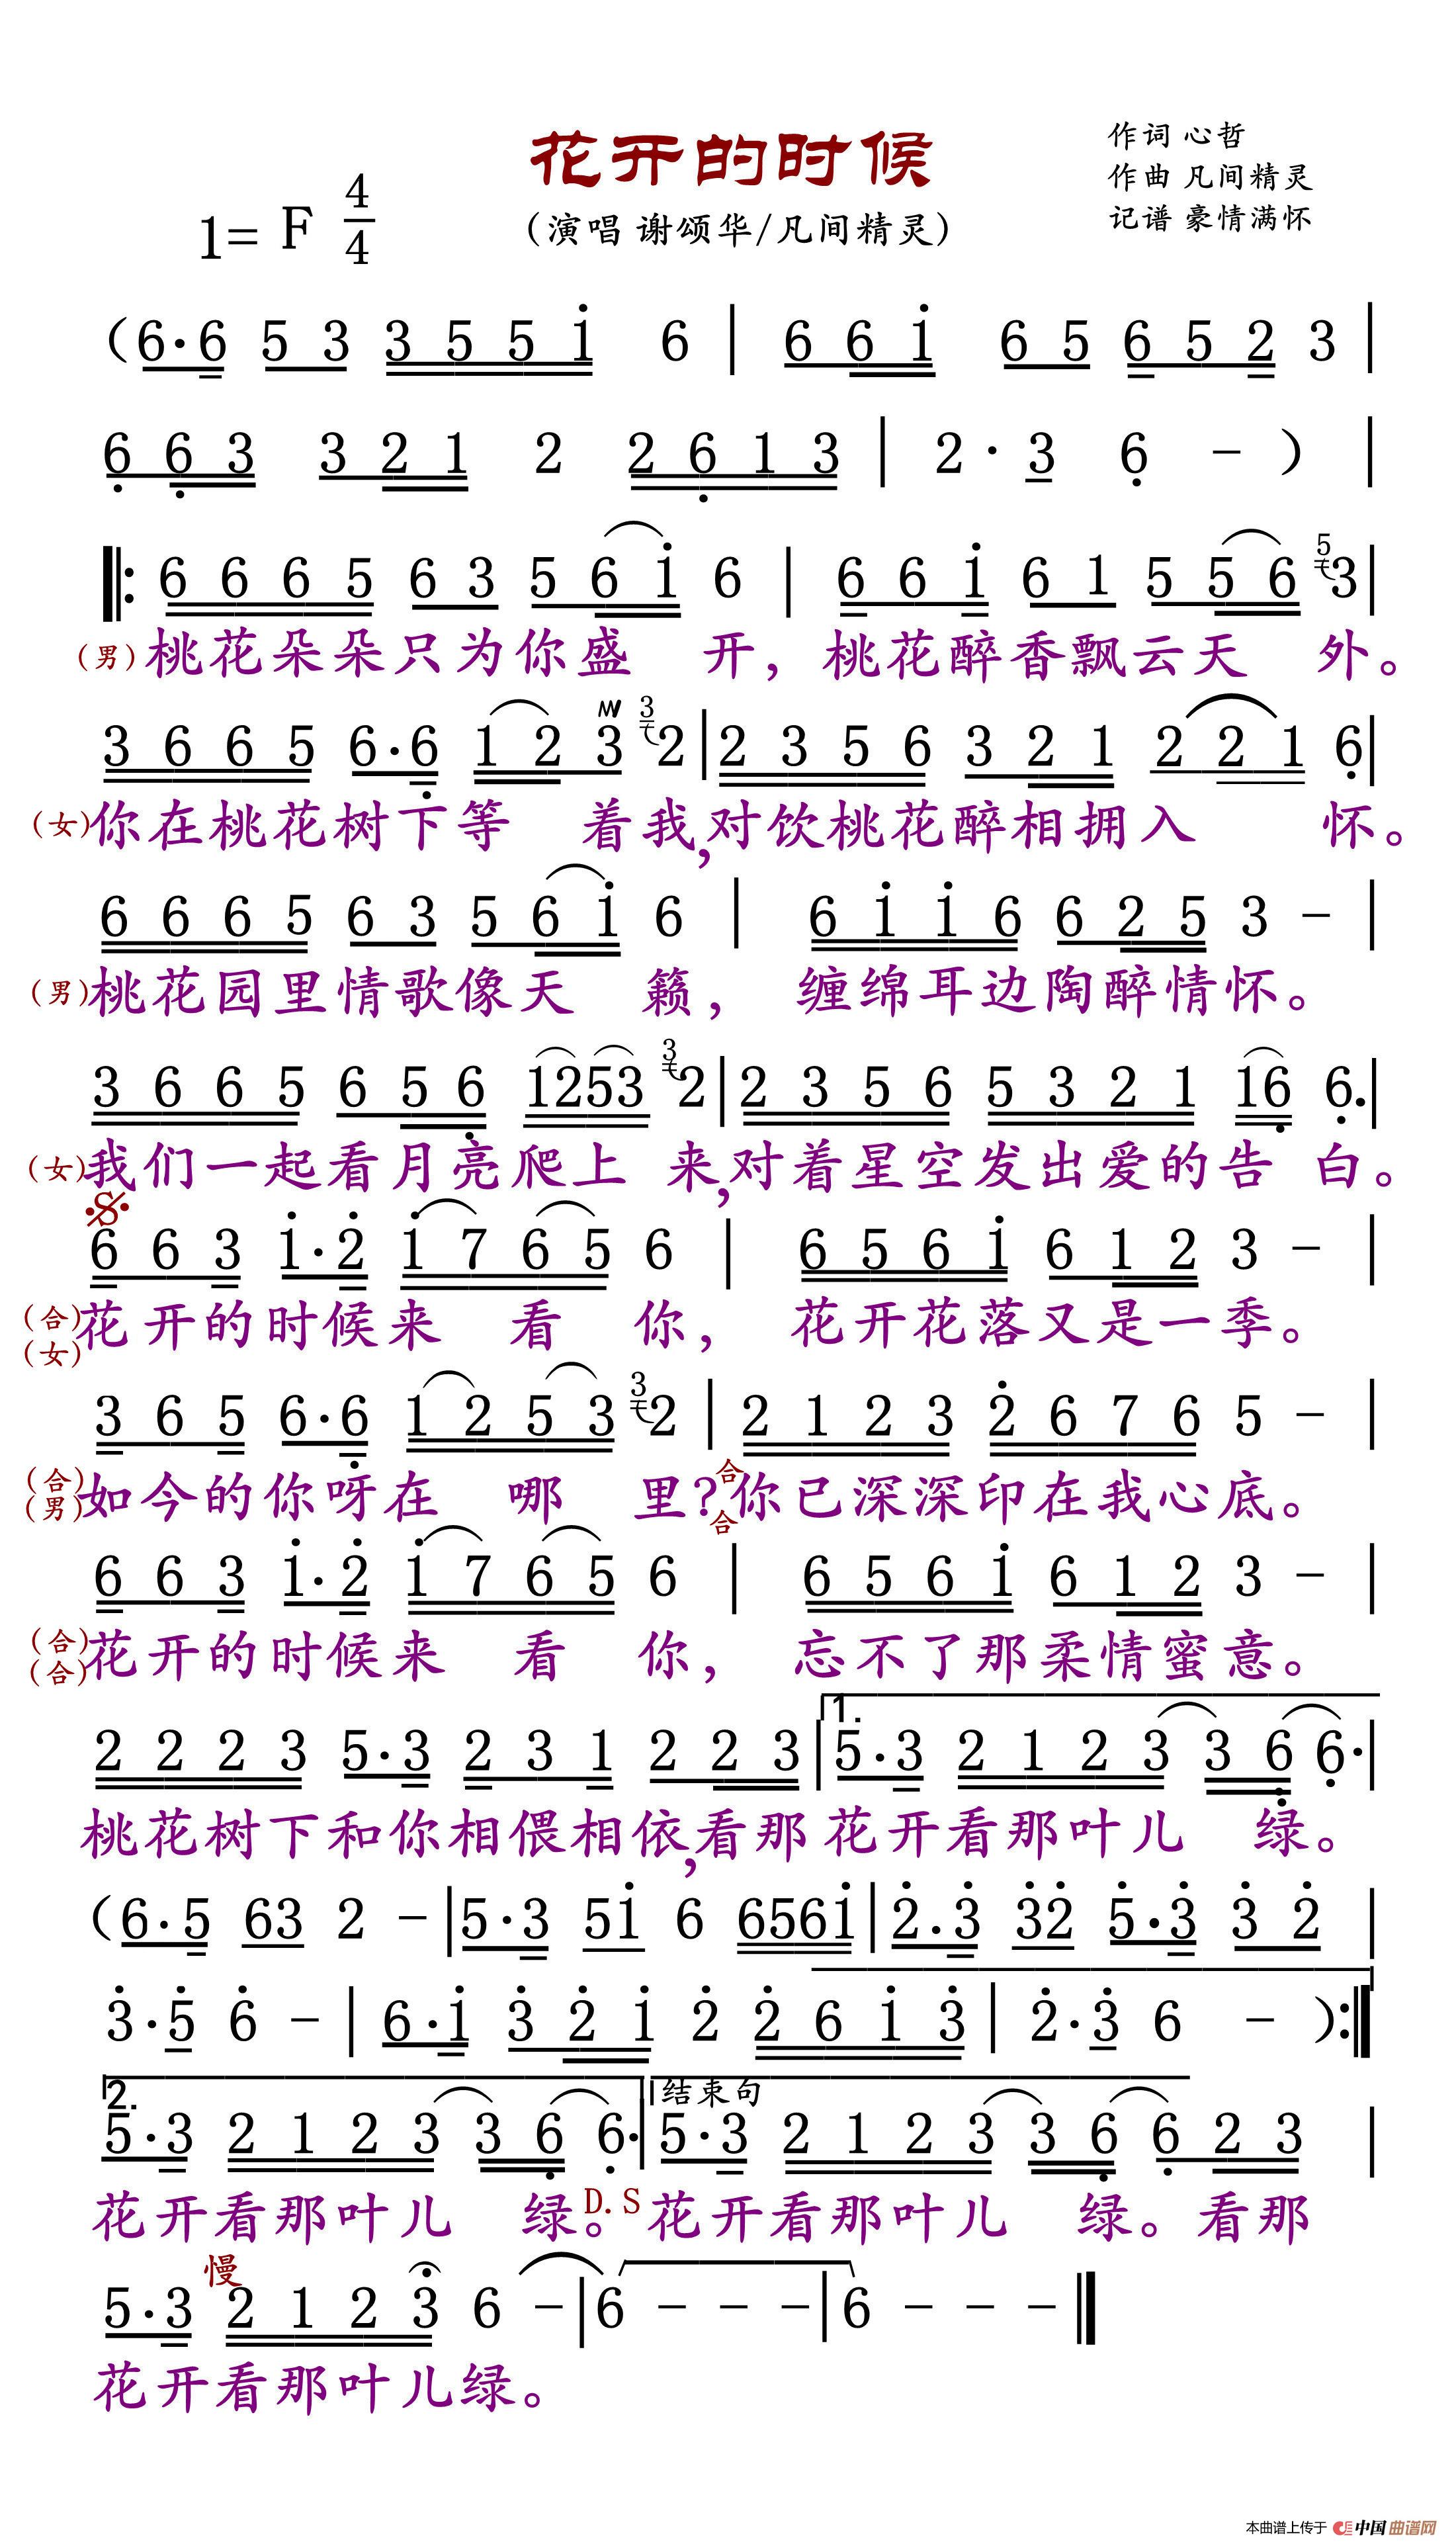 花开的时候
作词 心哲
作曲 凡间精灵
记谱 豪情满怀
1= F 4/4
(演唱 谢颂华/凡间精灵)
(6·6 5 3 3 5 5 i 6 | 6 6 i 6 5 6 5 2 3 |
6 6 3 3 2 1 2 2 6 1 3 | 2 · 3 6 - ) |
‖: 6 6 6 5 6 3 5 6 i 6 | 6 6 i 6 1 5 5 6 5 3 |
(男) 桃花朵朵只为你盛 开, 桃花醉香飘云天 外。
3 6 6 5 6·6 1 2 3 3 2 | 2 3 5 6 3 2 1 2 2 1 6 |
(女) 你在桃花树下等 着我,对饮桃花醉相拥入 怀。
6 6 6 5 6 3 5 6 i 6 | 6 i i 6 6 2 5 3 - |
(男) 桃花园里情歌像天 籁, 缠绵耳边陶醉情怀。
3 6 6 5 6 5 6 1253 3 2 | 2 3 5 6 5 3 2 1 16 6. |
(女) 我们一起看月亮爬上 来,对着星空发出爱的告 白。
6 6 3 i·2 i 7 6 5 6 | 6 5 6 i 6 1 2 3 - |
(合) 花开的时候来 看 你, 花开花落又是一季。
(女)
3 6 5 6·6 1 2 5 3 3 2 | 2 1 2 3 2 6 7 6 5 - |
(合) 如今的你呀在 哪 里? 合 你已深深印在我心底。
(男) 合
6 6 3 i·2 i 7 6 5 6 | 6 5 6 i 6 1 2 3 - |
(合) 花开的时候来 看 你, 忘不了那柔情蜜意。
(合)
2 2 2 3 5·3 2 3 1 2 2 3 | 1. 5·3 2 1 2 3 3 6 6· |
桃花树下和你相偎相依,看那 花开看那叶儿 绿。
(6·5 63 2 - | 5·3 5i 6 656i | 2·3 32 5·3 3 2 |
3·5 6 - | 6·i 3 2 i 2 2 6 i 3 | 2·3 6 - ) :‖
2. 5·3 2 1 2 3 3 6 6· | 结束句 5·3 2 1 2 3 3 6 6 2 3 |
花开看那叶儿 绿。 D.S 花开看那叶儿 绿。看那
慢
5·3 2 1 2 3 6 - | 6 - - - | 6 - - - ‖
花开看那叶儿绿。
本曲谱上传于 中国曲谱网